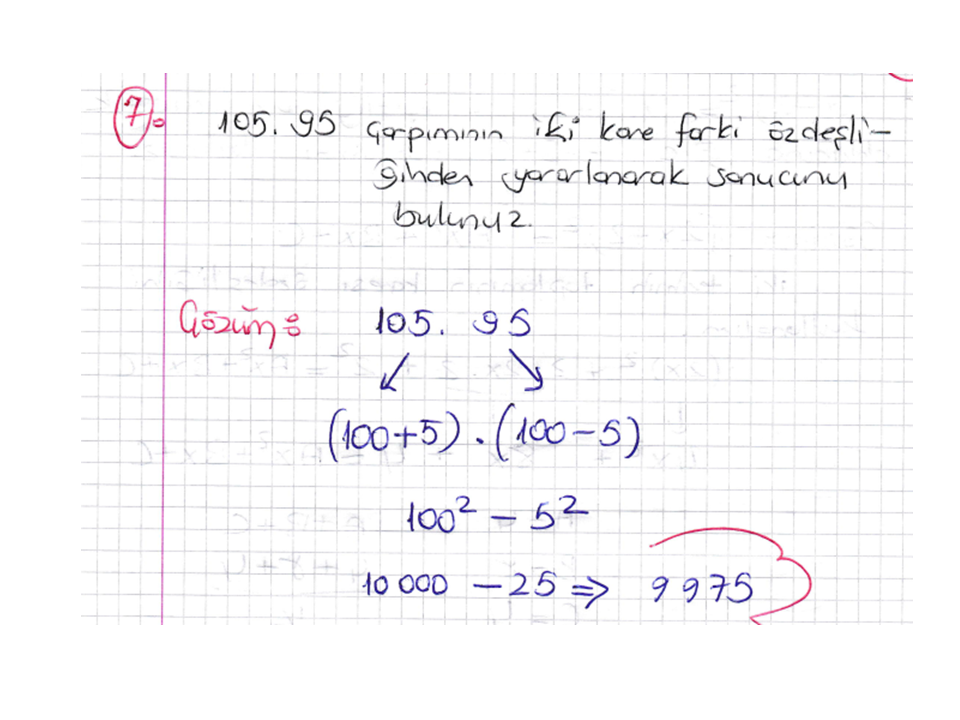 7. 105.95 çarpımının iki kare farkı özdeşli-
ğinden yararlanarak sonucunu
bulunuz.
Çözüm: 105. 95
↙ ↘
(100+5).(100-5)
100² - 5²
10 000 - 25 ⇒ 9975